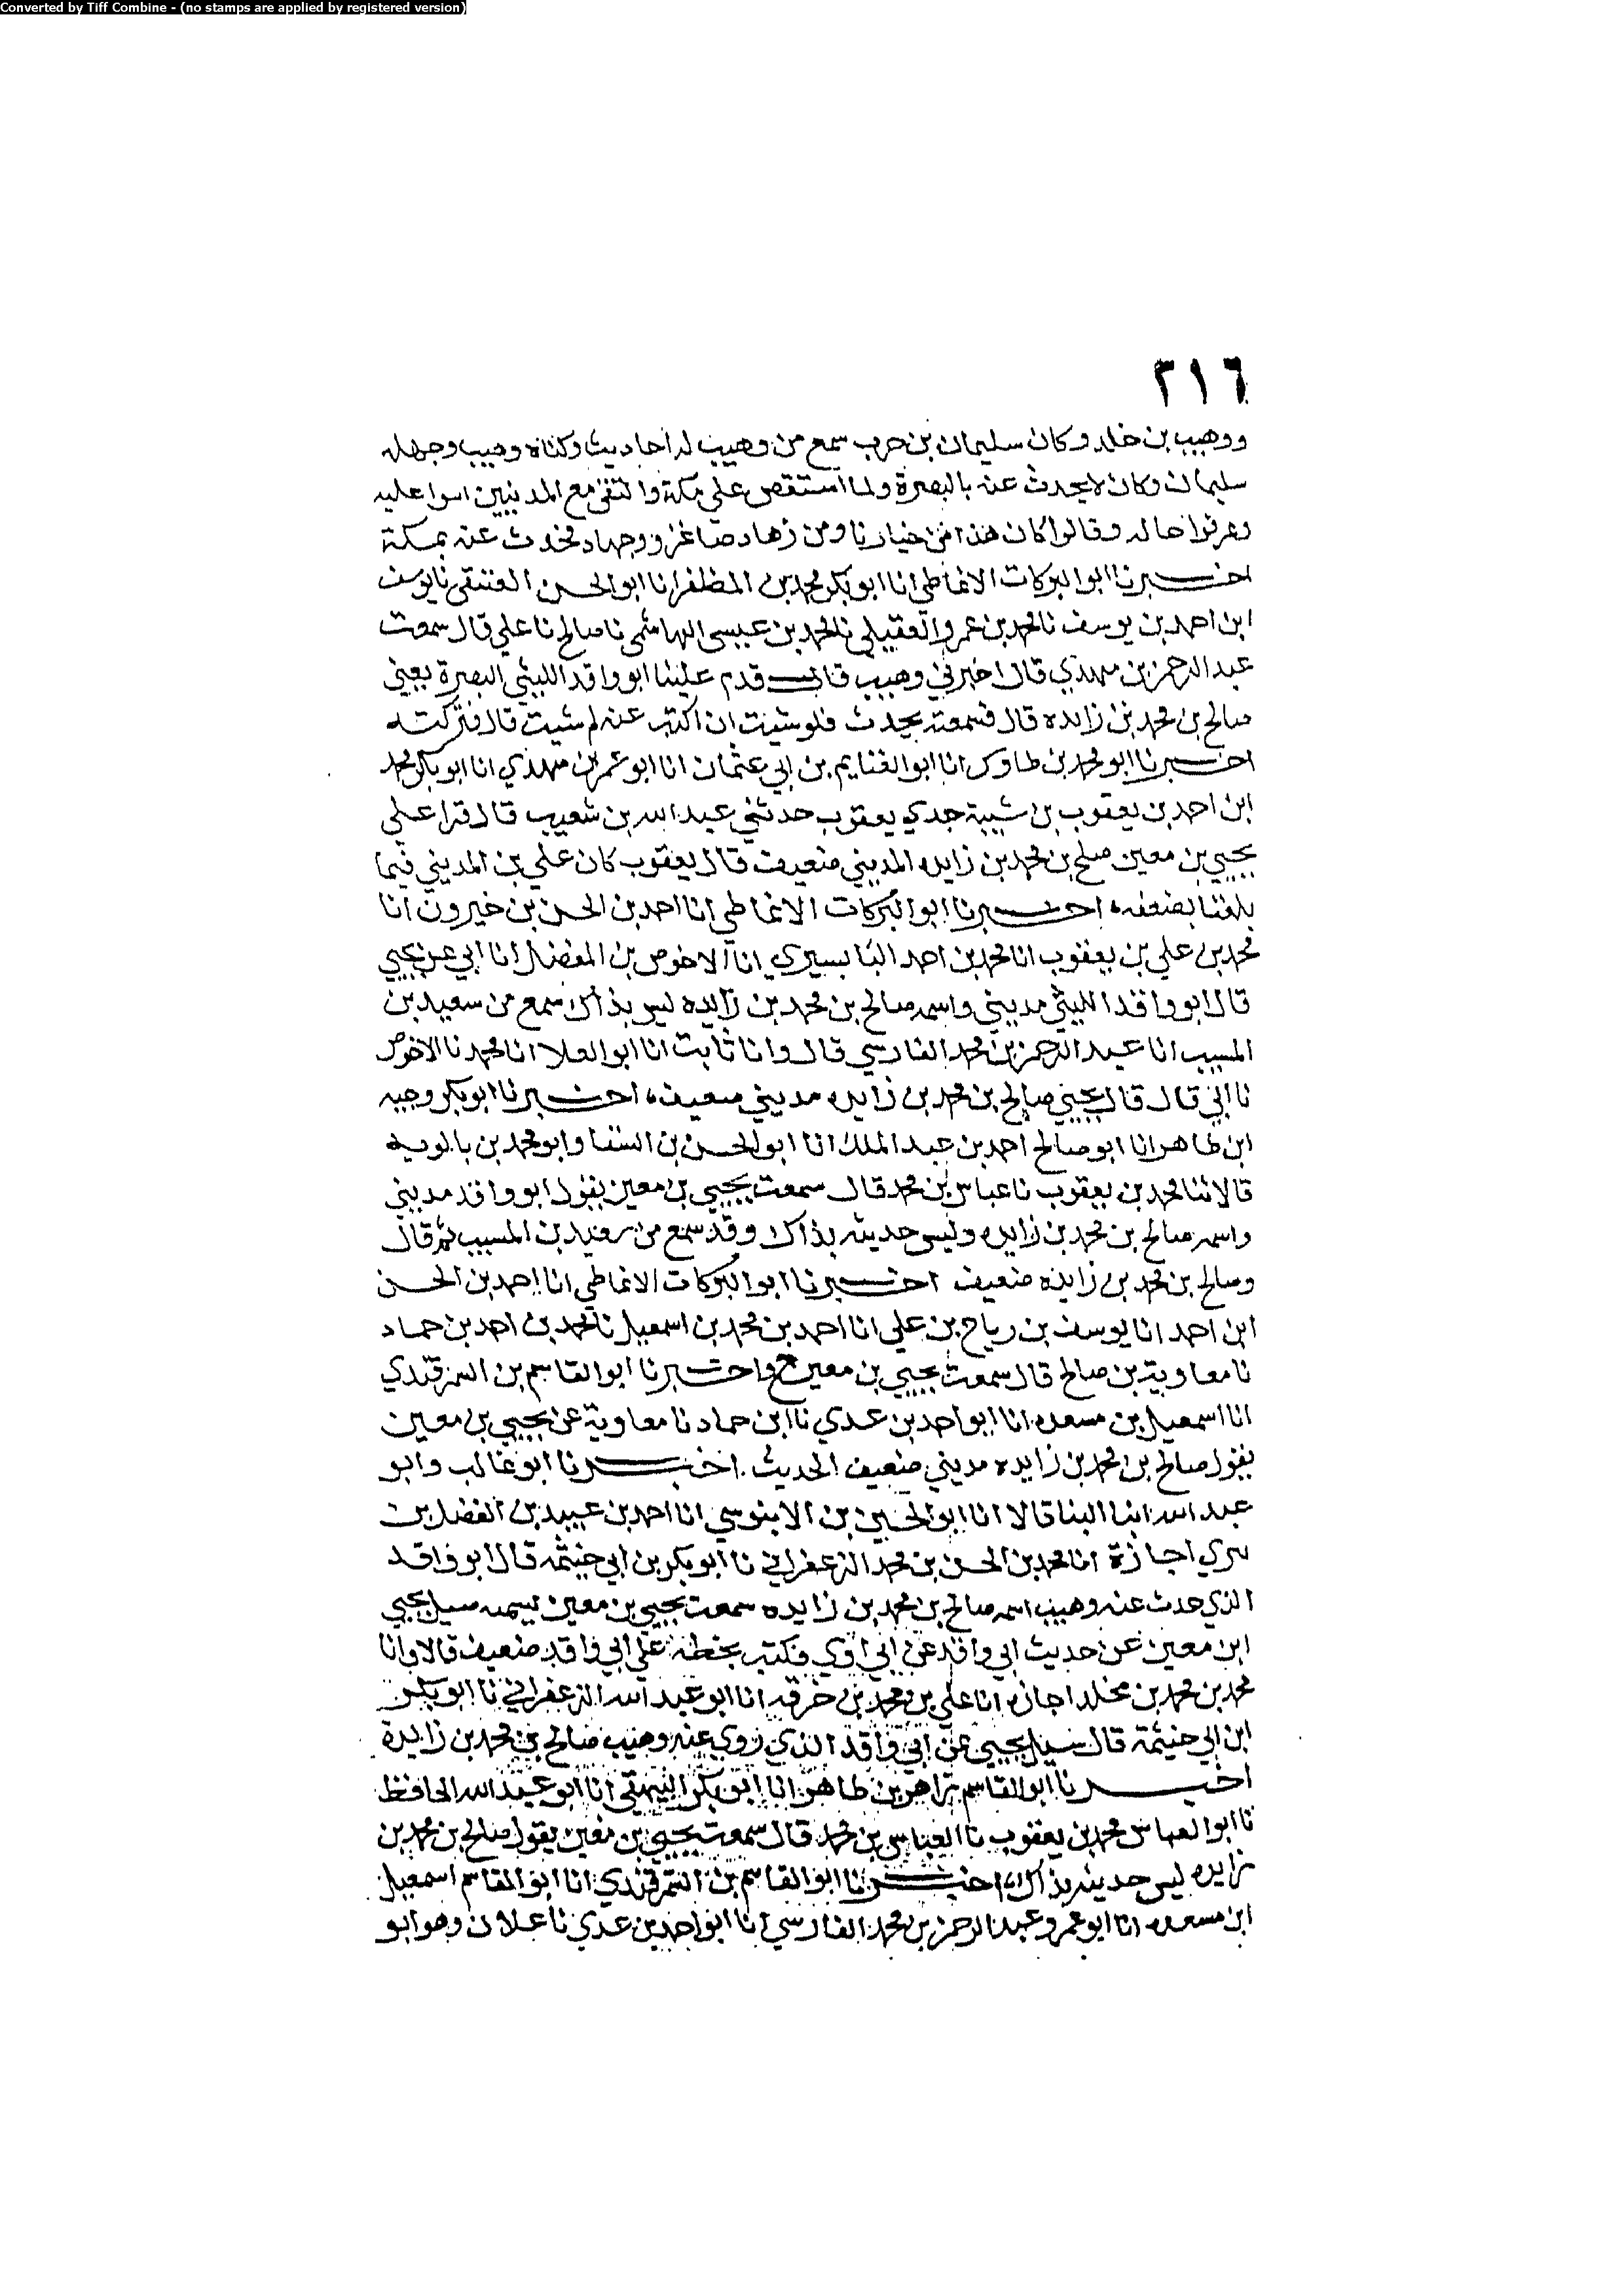 Converted by Tiff Combine - (no stamps are applied by registered version)
٢١٦
ووهيب بن خلد وكان سليمان بن حرب سمع من وهيب له احاديث وكناه وهيب وجهله
سليمان وكان لا يحدث عنه بالبصرة ولما استقص علي مكة والتقى مع المدنيين اسوا عليه
وعرفوا حاله وقالوا كان هذا من خيارنا ومن زهاد صاغزو وجهاد فحدث عنه بمكة
اخبرنا ابو البركات الانماطي انا ابو بكر محمد بن المظفر انا ابو الحسن العتيقي نا يوسف
ابن احمد بن يوسف نا محمد بن عمرو العقيلي نا محمد بن عيسى الهاشمي نا صالح نا علي قال سمعت
عبد الرحمن بن مهدي قال اخبرني وهيب قال قدم علينا ابو واقد الليثي البصرة يعني
صالح بن محمد بن زايده قال فسمعته يحدث فلو شيت ان اكتب عنه لم شيت قال فتركته
اخبرنا ابو محمد بن طاوس انا ابو الغنايم بن ابي عثمان انا ابو عمر بن مهدي انا ابو بكر محمد
ابن احمد بن يعقوب بن شيبة جدي يعقوب حدثني عبد الله بن شعيب قال قرا علي
يحيي بن معين صلح بن محمد بن زايده المديني ضعيف قال يعقوب كان علي بن المديني فيما
بلغنا يضعفه اخبرنا ابو البركات الانماطي انا احمد بن الحسن بن خيرون انا
محمد بن علي بن يعقوب انا محمد بن احمد البابسيري انا الاخوص بن المفضل انا ابي عن يحيي
قال ابو واقد الليثي مديني واسمه صالح بن محمد بن زايده ليس بذاك سمع من سعيد بن
المسيب انا عبد الرحمن بن محمد الفارسي قال وانا ثابت انا ابو العلا انا محمد نا الاخوص
نا ابي قال قال يحيي صالح بن محمد بن زايده مديني ضعيف، اخبرنا ابو بكر وجيه
ابن طاهر انا ابو صالح احمد بن عبد الملك انا ابو الحسن بن السقا وابو محمد بن بالويه
قالا ثنا محمد بن يعقوب نا عباس بن محمد قال سمعت يحيي بن معين يقول ابو واقد مديني
واسمه صالح بن محمد بن زايده وليس حديثه بذاك وقد سمع من سعيد بن المسيب ثم قال
وصالح بن محمد بن زايده ضعيف اخبرنا ابو البركات الانماطي انا احمد بن الحسن
ابن احمد انا يوسف بن رباح بن علي انا احمد بن محمد بن اسمعيل نا محمد بن احمد بن حماد
نا معاوية بن صالح قال سمعت يحيي بن معين ح واخبرنا ابو القاسم بن السمرقندي
انا اسمعيل بن مسعده انا ابو احمد بن عدي نا ابن حماد نا معاوية عن يحيي بن معين
يقول صالح بن محمد بن زايده مديني ضعيف الحديث. اخبرنا ابو غالب وابو
عبد الله ابنا البنا قالا انا ابو الحسين بن الابنوسي انا احمد بن عبيد بن الفضل بن
سري اجازة انا محمد بن الحسن بن محمد الزعفراني نا ابو بكر بن ابي خيثمه قال ابو واقد
الذي حدث عنه وهيب اسمه صالح بن محمد بن زايده سمعت يحيي بن معين يسميه سيل يحيي
ابن معين عن حديث ابي واقد عن ابي اروي فكتب بخطه علي ابي واقد ضعيف قالا وانا
محمد بن محمد بن مخلد اجازه انا علي بن محمد بن خزفه انا ابو عبد الله الزعفراني نا ابو بكر
ابن ابي خيثمة قال سيل يحيي عن ابي واقد الذي روي عنه وهيب صالح بن محمد بن زايدة
اخبرنا ابو القاسم زاهر بن طاهر انا ابو بكر البيهقي انا ابو عبد الله الحافظ
نا ابو العباس محمد بن يعقوب نا العباس بن محمد قال سمعت يحيي بن معين يقول صالح بن محمد بن
زايده ليس حديثه بذاك، اخبرنا ابو القاسم بن السمرقندي انا ابو القاسم اسمعيل
ابن مسعده انا ابو عمرو عبد الرحمن بن محمد الفارسي انا ابو احمد بن عدي نا علان وهو ابو